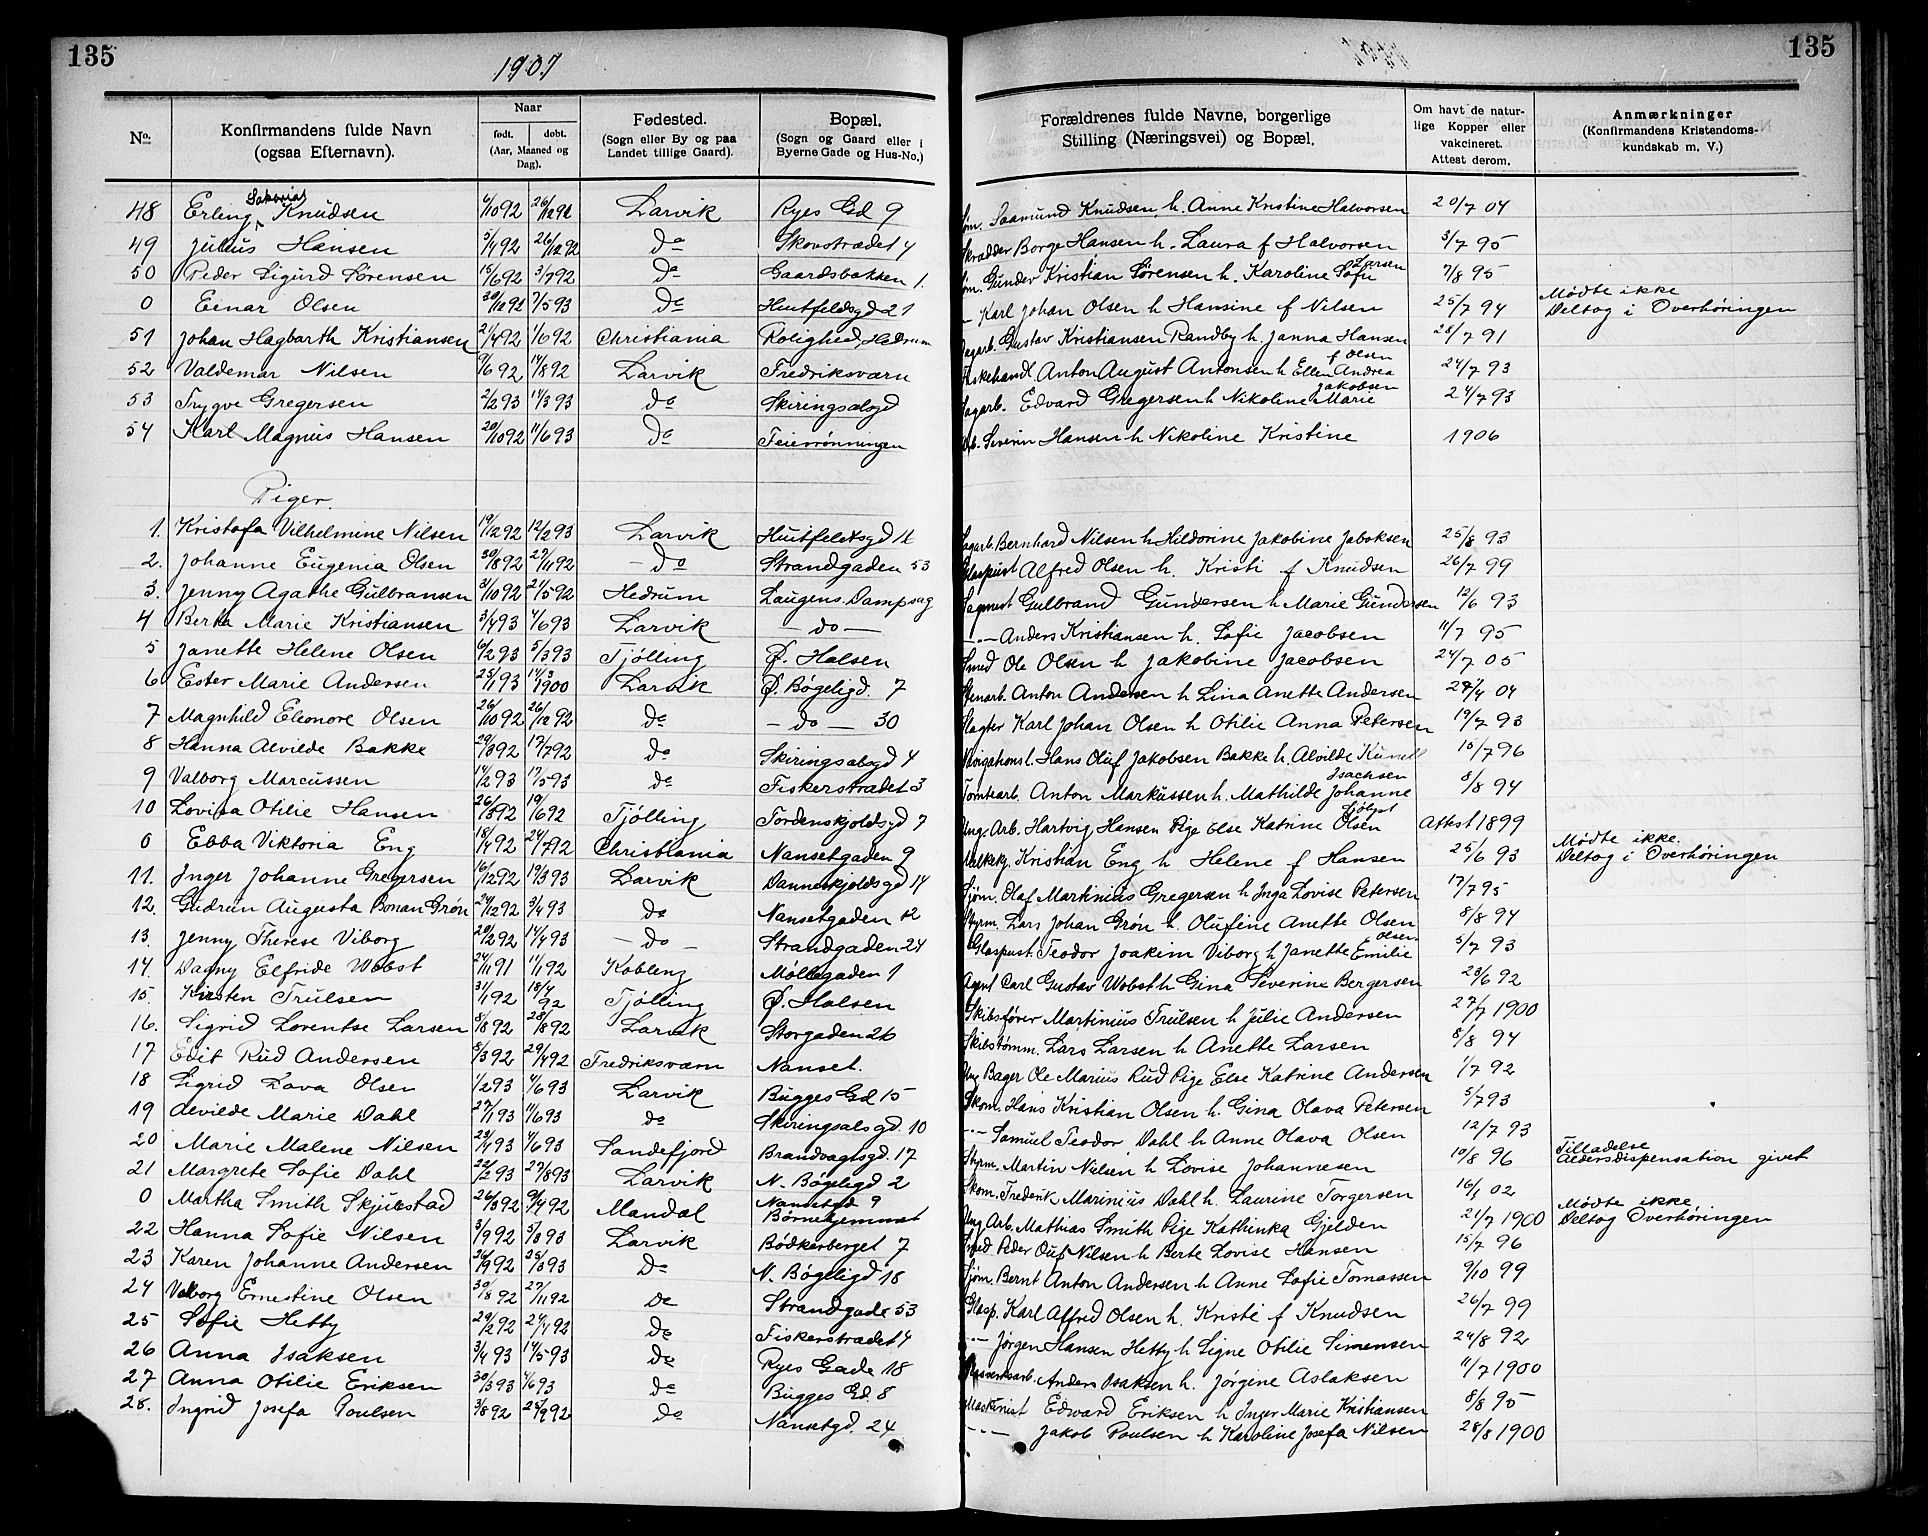 135
1907
135
No. Konfirmandens fulde Navn (ogsaa Efternavn). Naar født. døbt. (Aar, Maaned og Dag). Fødested. (Sogn eller By og paa Landet tillige Gaard). Bopæl. (Sogn og Gaard eller i Byerne Gade og Hus-No.) Forældrenes fulde Navne, borgerlige Stilling (Næringsvei) og Bopæl. Om havt de naturlige Kopper eller vakcineret. Attest derom. Anmærkninger (Konfirmandens Kristendomskundskab m. V.)
48 Erling Knudsen 4/10 92 26/12 92 Larvik Ryes Gd 9 Saamund Knudsen h. Anne Kristine Halvorsen 20/7 04
49 Julius Hansen 5/4 92 26/12 92 do Skovstrædet 4 Skrædder Borge Hansen h. Laura f Halvorsen 3/7 95
50 Peder Sigurd Sørensen 15/6 92 3/7 92 Do Gaardsbakken 1. Gunder Kristian Sørensen h. Karoline Sofie Larsen 7/8 95
0 Einar Olsen 7/5 93 Do Huitfeldsgd 21 Karl Johan Olsen h Hansine f Nilsen 25/7 94 Mødte ikke Deltog i Overhøringen
51 Johan Hagbarth Kristiansen 21/4 92 1/6 92 Christiania Rolighed, Hedrum Sagarb. Gustav Kristiansen Randby h. Janna Hansen 28/7 91
52 Valdemar Nilsen 9/6 92 14/8 92 Larvik Fredriksværn Fiskehandl. Anton August Antonsen h Ellen Andrea f Olsen 24/7 93
53 Trygve Gregersen 2/2 93 11/3 93 do Skiringsalsgd Sagarb. Edvard Gregersen h Nikoline Marie Jakobsen 24/7 93
54 Karl Magnus Hansen 20/10 92 11/6 93 Do Feierrønningen Arb. Severin Hansen h Nikoline Kristine 1906
Piger.
1. Kristofa Vilhelmine Nilsen 19/12 92 12/2 93 Larvik Huitfeldtsgd 14 Sagarb. Bernhard Nilsen h Hildorine Jakobine Jaboksen 25/8 93
2. Johanne Eugenia Olsen 30/8 92 27/11 92 – Do Strandgaden 53 Glaspust Alfred Olsen h. Kristi f Knudsen 26/7 99
3. Jenny Agathe Gulbransen 31/10 92 21/5 92 Hedrum Laugens Dampsag Sagmest Gulbrand Gundersen h Marie Gundersen 12/6 93
4 Berta Marie Kristiansen 3/4 93 4/6 93 Larvik – do – –"– Anders Kristiansen h. Sofie Jacobsen 11/7 95
5 Janette Helene Olsen 6/2 93 5/3 93 Tjølling Ø. Halsen Smed Ole Olsen h Jakobine Jacobsen 24/7 05
6 Ester Marie Andersen 25/1 93 14/3 1900 Larvik Ø. Bøgeligd. 7 Stenarb. Anton Andersen h Lina Anette Andersen 27/4 04
7 Magnhild Eleonore Olsen 26/10 92 26/12 92 do – do – 30 Slagter Karl Johan Olsen h Otilie Anna Petersen 19/7 93
8 Hanna Alvilde Bakke 29/3 92 17/7 92 do Skiringsalsgd 4 Navigationsl. Hans Oluf Jakobsen Bakke h. Alvilde 15/7 96
9 Valborg Marcussen 14/2 93 17/5 93 do Fiskerstrædet 3 Tomtearb. Anton Markussen h. Mathilde Johanne Isachsen 8/8 94
10 Lovisa Otilie Hansen 26/3 92 19/6 92 Tjølling Tordenskjoldsgd 7 Ung. Arb. Hartvig Hansen Pige Else Katrine Olsen Sjølyst Attest 1899
0 Ebba Viktoria Eng 18/4 92 24/7 92 Christiania Nansetgaden 9 Kristian Eng h Helene f Hansen 25/6 93 Mødte ikke. Deltog i Overhøringen
11. Inger Johanne Gregersen 16/12 92 19/3 93 Larvik Danneskjoldsgd 14 Sjøm. Olaf Martinius Gregersen h Inga Lovise Petersen 17/7 95
12. Gudrun Augusta Bonan Grøn 24/12 92 3/4 93 do Nansetgaden 12 Styrm. Lars Johan Grøn h. Olufine Anette Olsen 8/8 94
13. Jenny Therese Viborg 20/2 92 14/4 93 – do – Strandgaden 24 Glaspust. Teodor Joakim Viborg h Janette Emilie Olsen 5/7 93
14. Dagny Elfride Wobst 24/11 91 11/1 92 Koblenz Møllegaden 1 Agent Carl Gustav Wobst h Gina Severine Bergersen 23/6 92
15. Kirsten Trulsen 31/1 92 18/4 92 Tjølling Ø. Halsen Skibsfører Martinius Trulsen h Julie Andersen 27/7 1900
16. Sigrid Lorentse Larsen 8/8 92 28/8 92 Larvik Storgaden 26 Skibstømm. Lars Larsen h Anette Larsen 8/8 94
17 Edit Rud Andersen 8/3 92 29/4 92 Fredriksværn Nanset. Ung Bager Ole Marius Rud Pige Else Katrine Andersen 1/7 92
18 Sigrid Lava Olsen 1/2 93 4/6 93 Larvik Bugges Gd 15 Skom. Hans Kristian Olsen h. Gina Olava Petersen 5/7 93
19 Alvilde Marie Dahl 27/1 93 11/6 93 do Skiringsalsgd. 10 –"– Samuel Teodor Dahl h Anne Olava Olsen 12/7 93
20 Marie Malene Nilsen 23/4 93 4/6 93 Sandefjord Brandvagtsgd. 17 Styrm. Martin Nielsen h Lovise Johannesen 10/8 96 Tilladelse Aldersdispensation givet
21 Margrete Sofie Dahl 22/2 93 27/8 93 Larvik N. Bøgeligd 2 Skom. Frederik Marinius Dahl h. Laurine Torgersen 16/1 02
0 Martha Smith Skjulstad 26/3 92 9/4 92 Mandal Nansetgd 9 Børnehjemmet Ung Arb. Mathias Smith Pige Kathinka Gjelden 21/7 1900 Mødte ikke Deltog Overhøringen
22 Hanna Sofie Nilsen 3/9 92 5/3 93 Larvik Bødkerberget 7 Smed Peder Oluf Nilsen h Berte Lovise Hansen 15/7 96
23 Karen Johanne Andersen 26/9 92 25/3 93 Do N. Bøgeligd 18 Sjøm. Bernt Anton Andersen h Anne Sofie Tomassen 9/10 99
24 Valborg Ernestine Olsen 30/8 92 27/11 92 Do Strandgade 53 Glasp. Karl Alfred Olsen h. Kristi f Knudsen 26/7 99
25 Sofie Hetty 29/2 92 24/4 92 Do Fiskerstrædet 4 –"– Jørgen Hansen Hetty h Signe Otilie Simensen 24/8 92
26 Anna Isaksen 3/4 93 14/5 93 Do Ryes Gade 18 Anders Isaksen h. Jørgine Aslaksen 11/7 1900
27 Anna Otilie Eriksen 30/3 93 4/6 93 do Bugges Gd. 8 Maskinist Edward Eriksen h Inger Marie Kristiansen 8/8 95
28. Ingrid Josefa Poulsen 3/8 92 25/9 92 do Nansetgd. 24 –"– Jakob Poulsen h Karoline Josefa Nilsen 28/8 1900